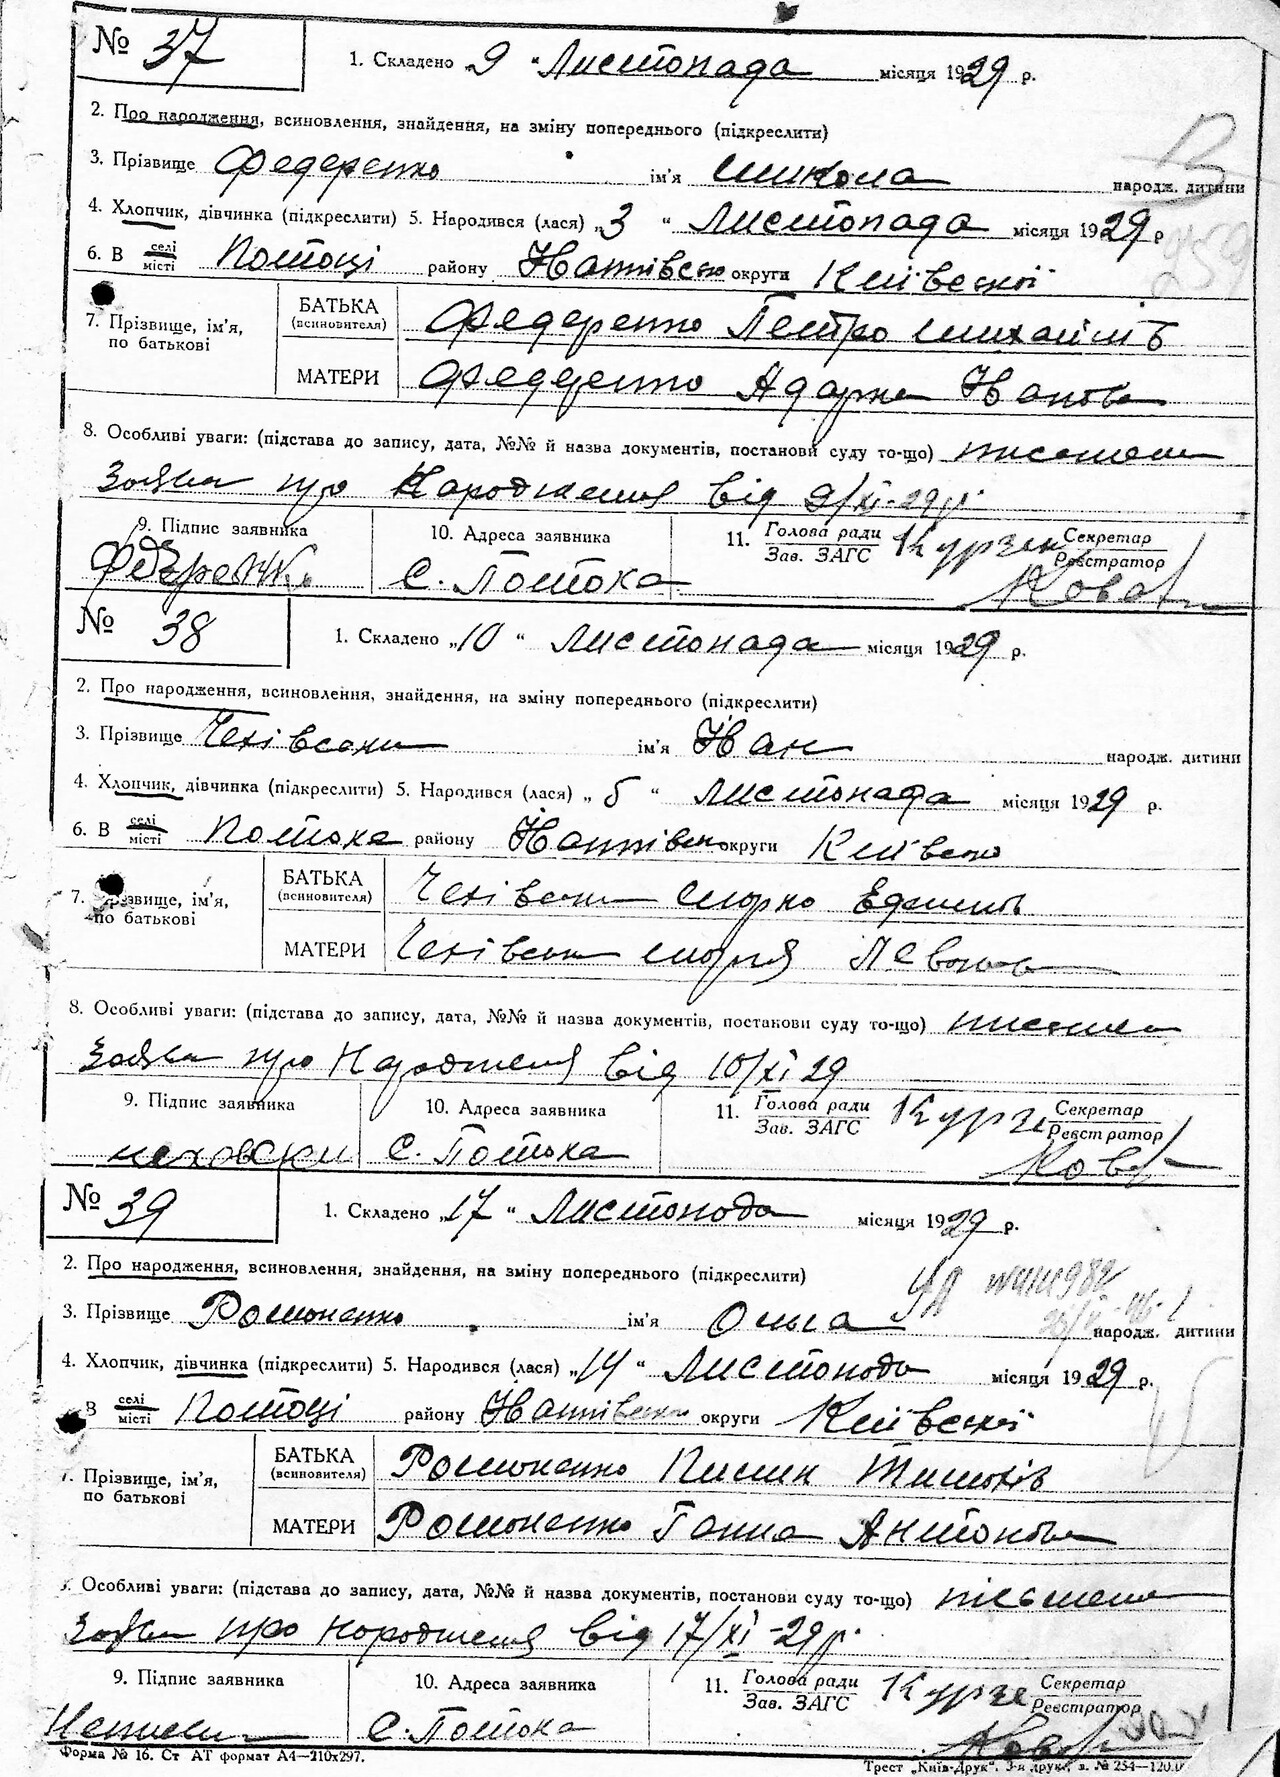 № 37
1. Складено „9“ Листопада місяця 1929 р.
2. Про народження, всиновлення, знайдення, на зміну попереднього (підкреслити)
3. Прізвище Федеренко ім'я Микола народж. дитини
4. Хлопчик, дівчинка (підкреслити) 5. Народився (лася) „3“ Листопада місяця 1929 р
6. В селі/місті Потоці району округи Київської
7. Прізвище, ім'я, по батькові
БАТЬКА (всиновителя) Федеренко Петро Михайлів
МАТЕРИ Федеренко Адарка
8. Особливі уваги: (підстава до запису, дата, №№ й назва документів, постанови суду то-що) письмена
Заява про Народження від 9/XI-29р.
9. Підпис заявника
10. Адреса заявника
11. Голова ради / Зав. ЗАГС
Секретар / Реєстратор
с. Потока
№ 38
1. Складено „10“ Листопада місяця 1929 р.
2. Про народження, всиновлення, знайдення, на зміну попереднього (підкреслити)
3. Прізвище ім'я Иван народж. дитини
4. Хлопчик, дівчинка (підкреслити) 5. Народився (лася) „ “ Листопада місяця 1929 р.
6. В селі/місті Потока району округи
7. Прізвище, ім'я, по батькові
БАТЬКА (всиновителя) Марко
МАТЕРИ
8. Особливі уваги: (підстава до запису, дата, №№ й назва документів, постанови суду то-що) письмена
Заява про Народження від 10/XI 29
9. Підпис заявника
10. Адреса заявника
11. Голова ради / Зав. ЗАГС
Секретар / Реєстратор
с. Потока
№ 39
1. Складено „17“ Листопада місяця 1929 р.
2. Про народження, всиновлення, знайдення, на зміну попереднього (підкреслити)
3. Прізвище Романенко ім'я Ольга народж. дитини
4. Хлопчик, дівчинка (підкреслити) 5. Народився (лася) „14“ Листопада місяця 1929 р.
В селі/місті Потоці району округи Київської
7. Прізвище, ім'я, по батькові
БАТЬКА (всиновителя) Романенко Пилип
МАТЕРИ Романенко Ганна Антонова
Особливі уваги: (підстава до запису, дата, №№ й назва документів, постанови суду то-що) письмена
Заява про народження від 17/XI-29р.
9. Підпис заявника
10. Адреса заявника
11. Голова ради / Зав. ЗАГС
Секретар / Реєстратор
с. Потока
Форма № 16. Ст АТ формат А4—210х297.
Трест „Київ-Друк“, 3-я друк., з. № 254—120.0